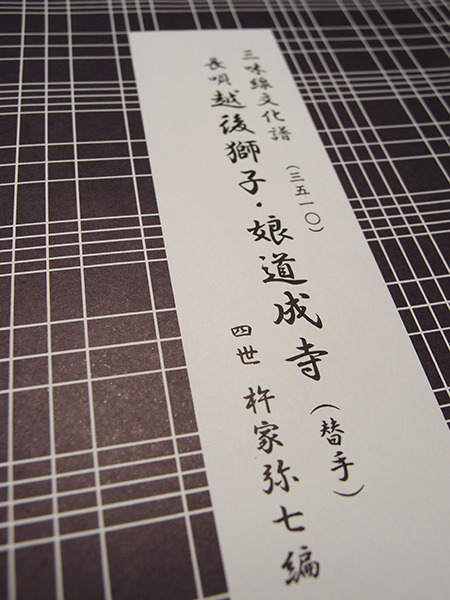 三味線文化譜
(三五一〇)
長唄 越後獅子・娘道成寺(替手)
四世 杵家弥七編